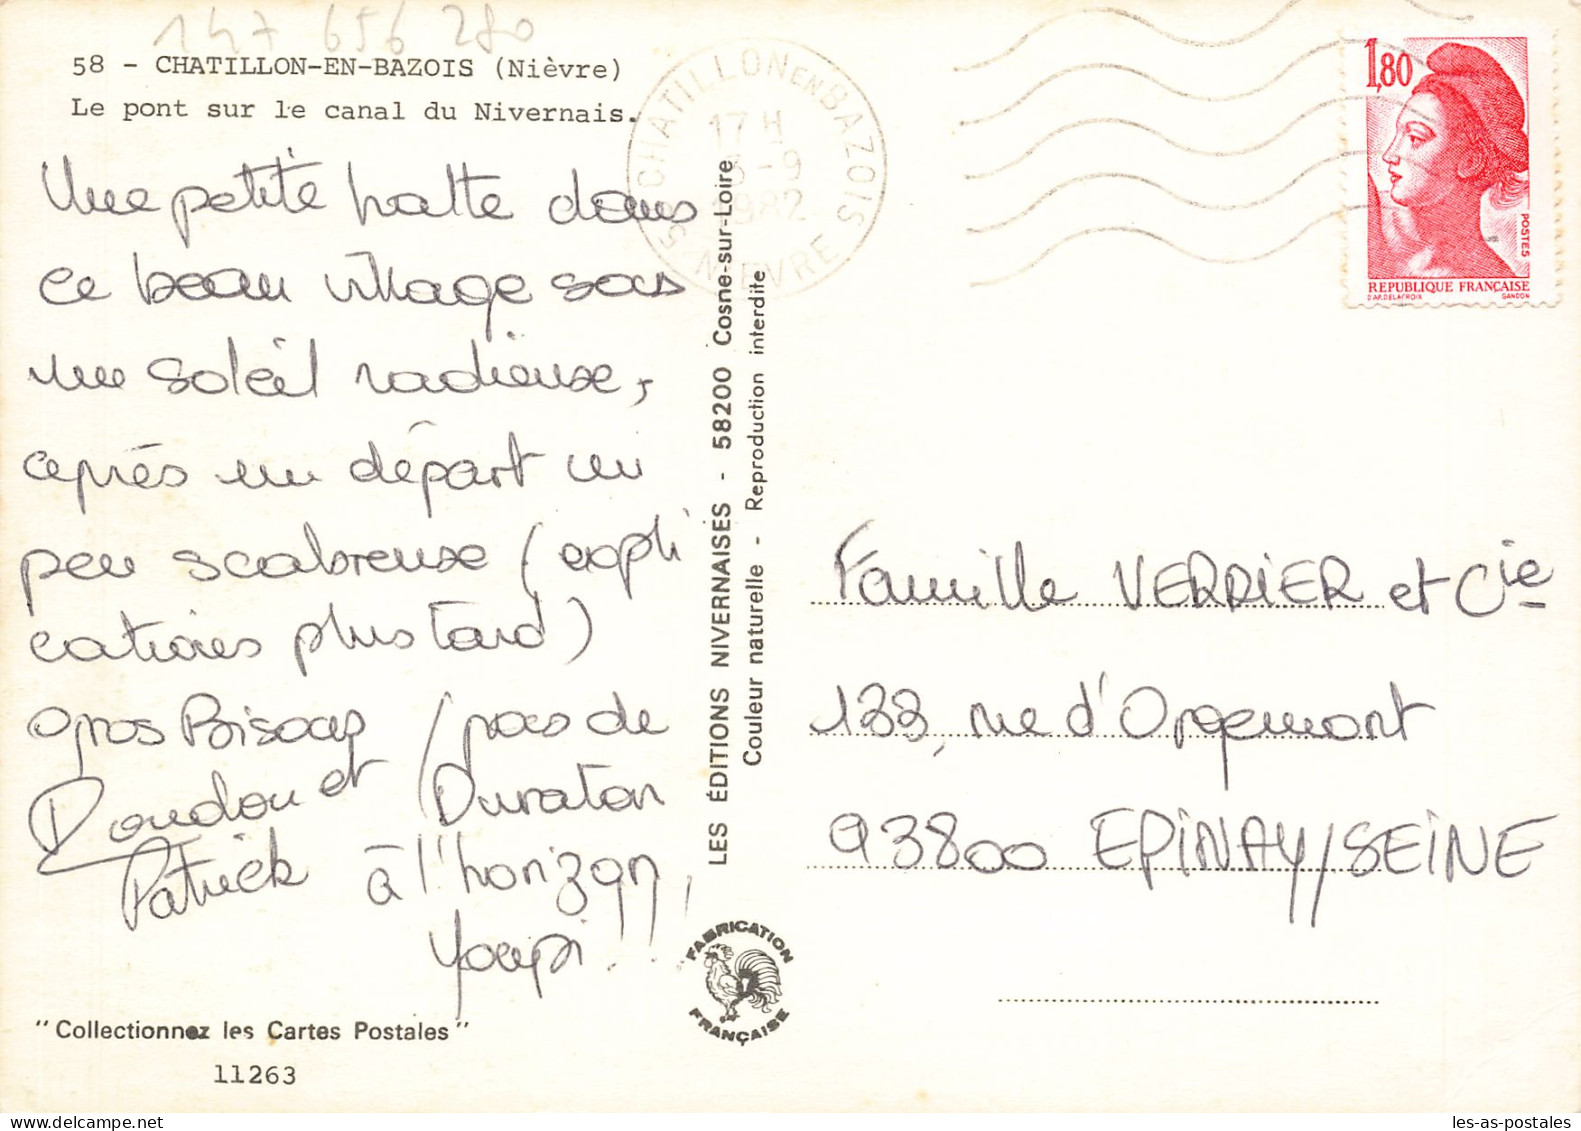 147 656 280
58 - CHATILLON-EN-BAZOIS (Nièvre)
Le pont sur le canal du Nivernais.
Une petite halte dans
ce beau village sous
une soleil radieuse,
après un départ un
peu scabreuse (expli
cations plus tard)
gros Bisous
Doudou et
Patrick
(pas de
Duraton
à l'horizon,
Youpi!!
"Collectionnez les Cartes Postales"
11263
LES ÉDITIONS NIVERNAISES - 58200 Cosne-sur-Loire
Couleur naturelle - Reproduction interdite
FABRICATION
FRANÇAISE
CHATILLON EN BAZOIS
17 H
-9
1982
NIEVRE
1,80
POSTES
REPUBLIQUE FRANÇAISE
D'AP.DELACROIX GANDON
Famille VERRIER et Cie
133, rue d'Orgemont
93800 EPINAY/SEINE
les-as-postales